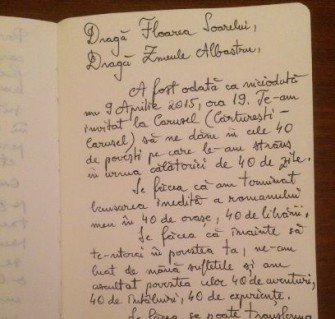 Dragă Floarea Soarelui,
Dragă Zmeule Albastru,
A fost odată ca niciodată
un 9 Aprilie 2015, ora 19. Te-am
invitat la Carusel (Cărturești-
Carusel) să ne dăm în cele 40
de povești pe care le-am strâns
în urma călătoriei de 40 de zile.
Se făcea că am terminat
lansarea inedită a romanului
meu în 40 de orașe, 40 de librării.
Se făcea că înainte să
te-ntorci în povestea ta, ne-am
luat de mână sufletele și am
ascultat povestea celor 40 de aventuri,
40 de întâlniri, 40 de experiențe.
Se făcea
se poate transforma